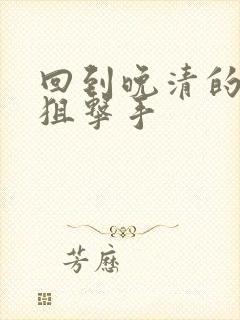 回到晚清的
狙撃手
芳歷